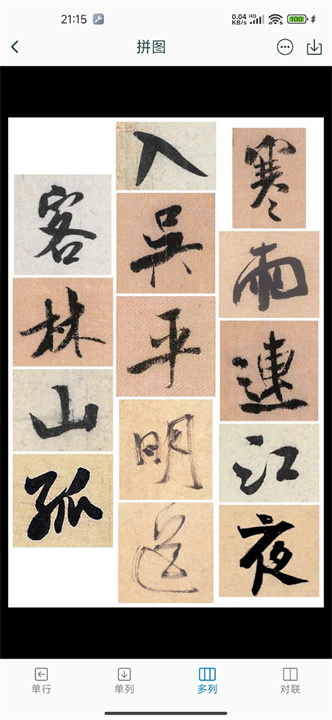 21:15
0.04 KB/s HD 100
拼图
寒雨連江夜
入吳平明送
客林山孤
单行 单列 多列 对联